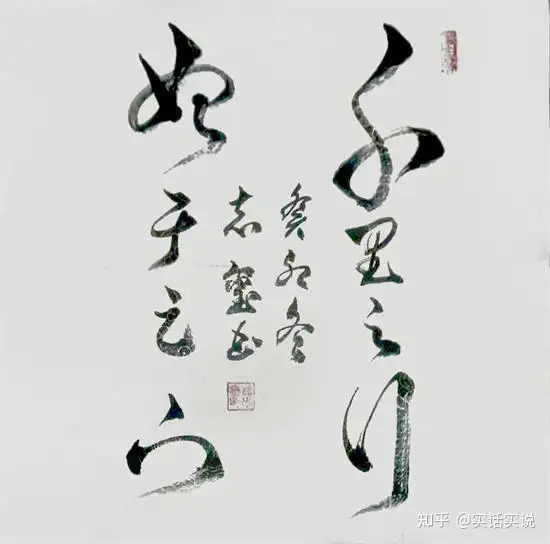 千里之行
始于足下
癸卯冬
志 书
知乎 @实话实说